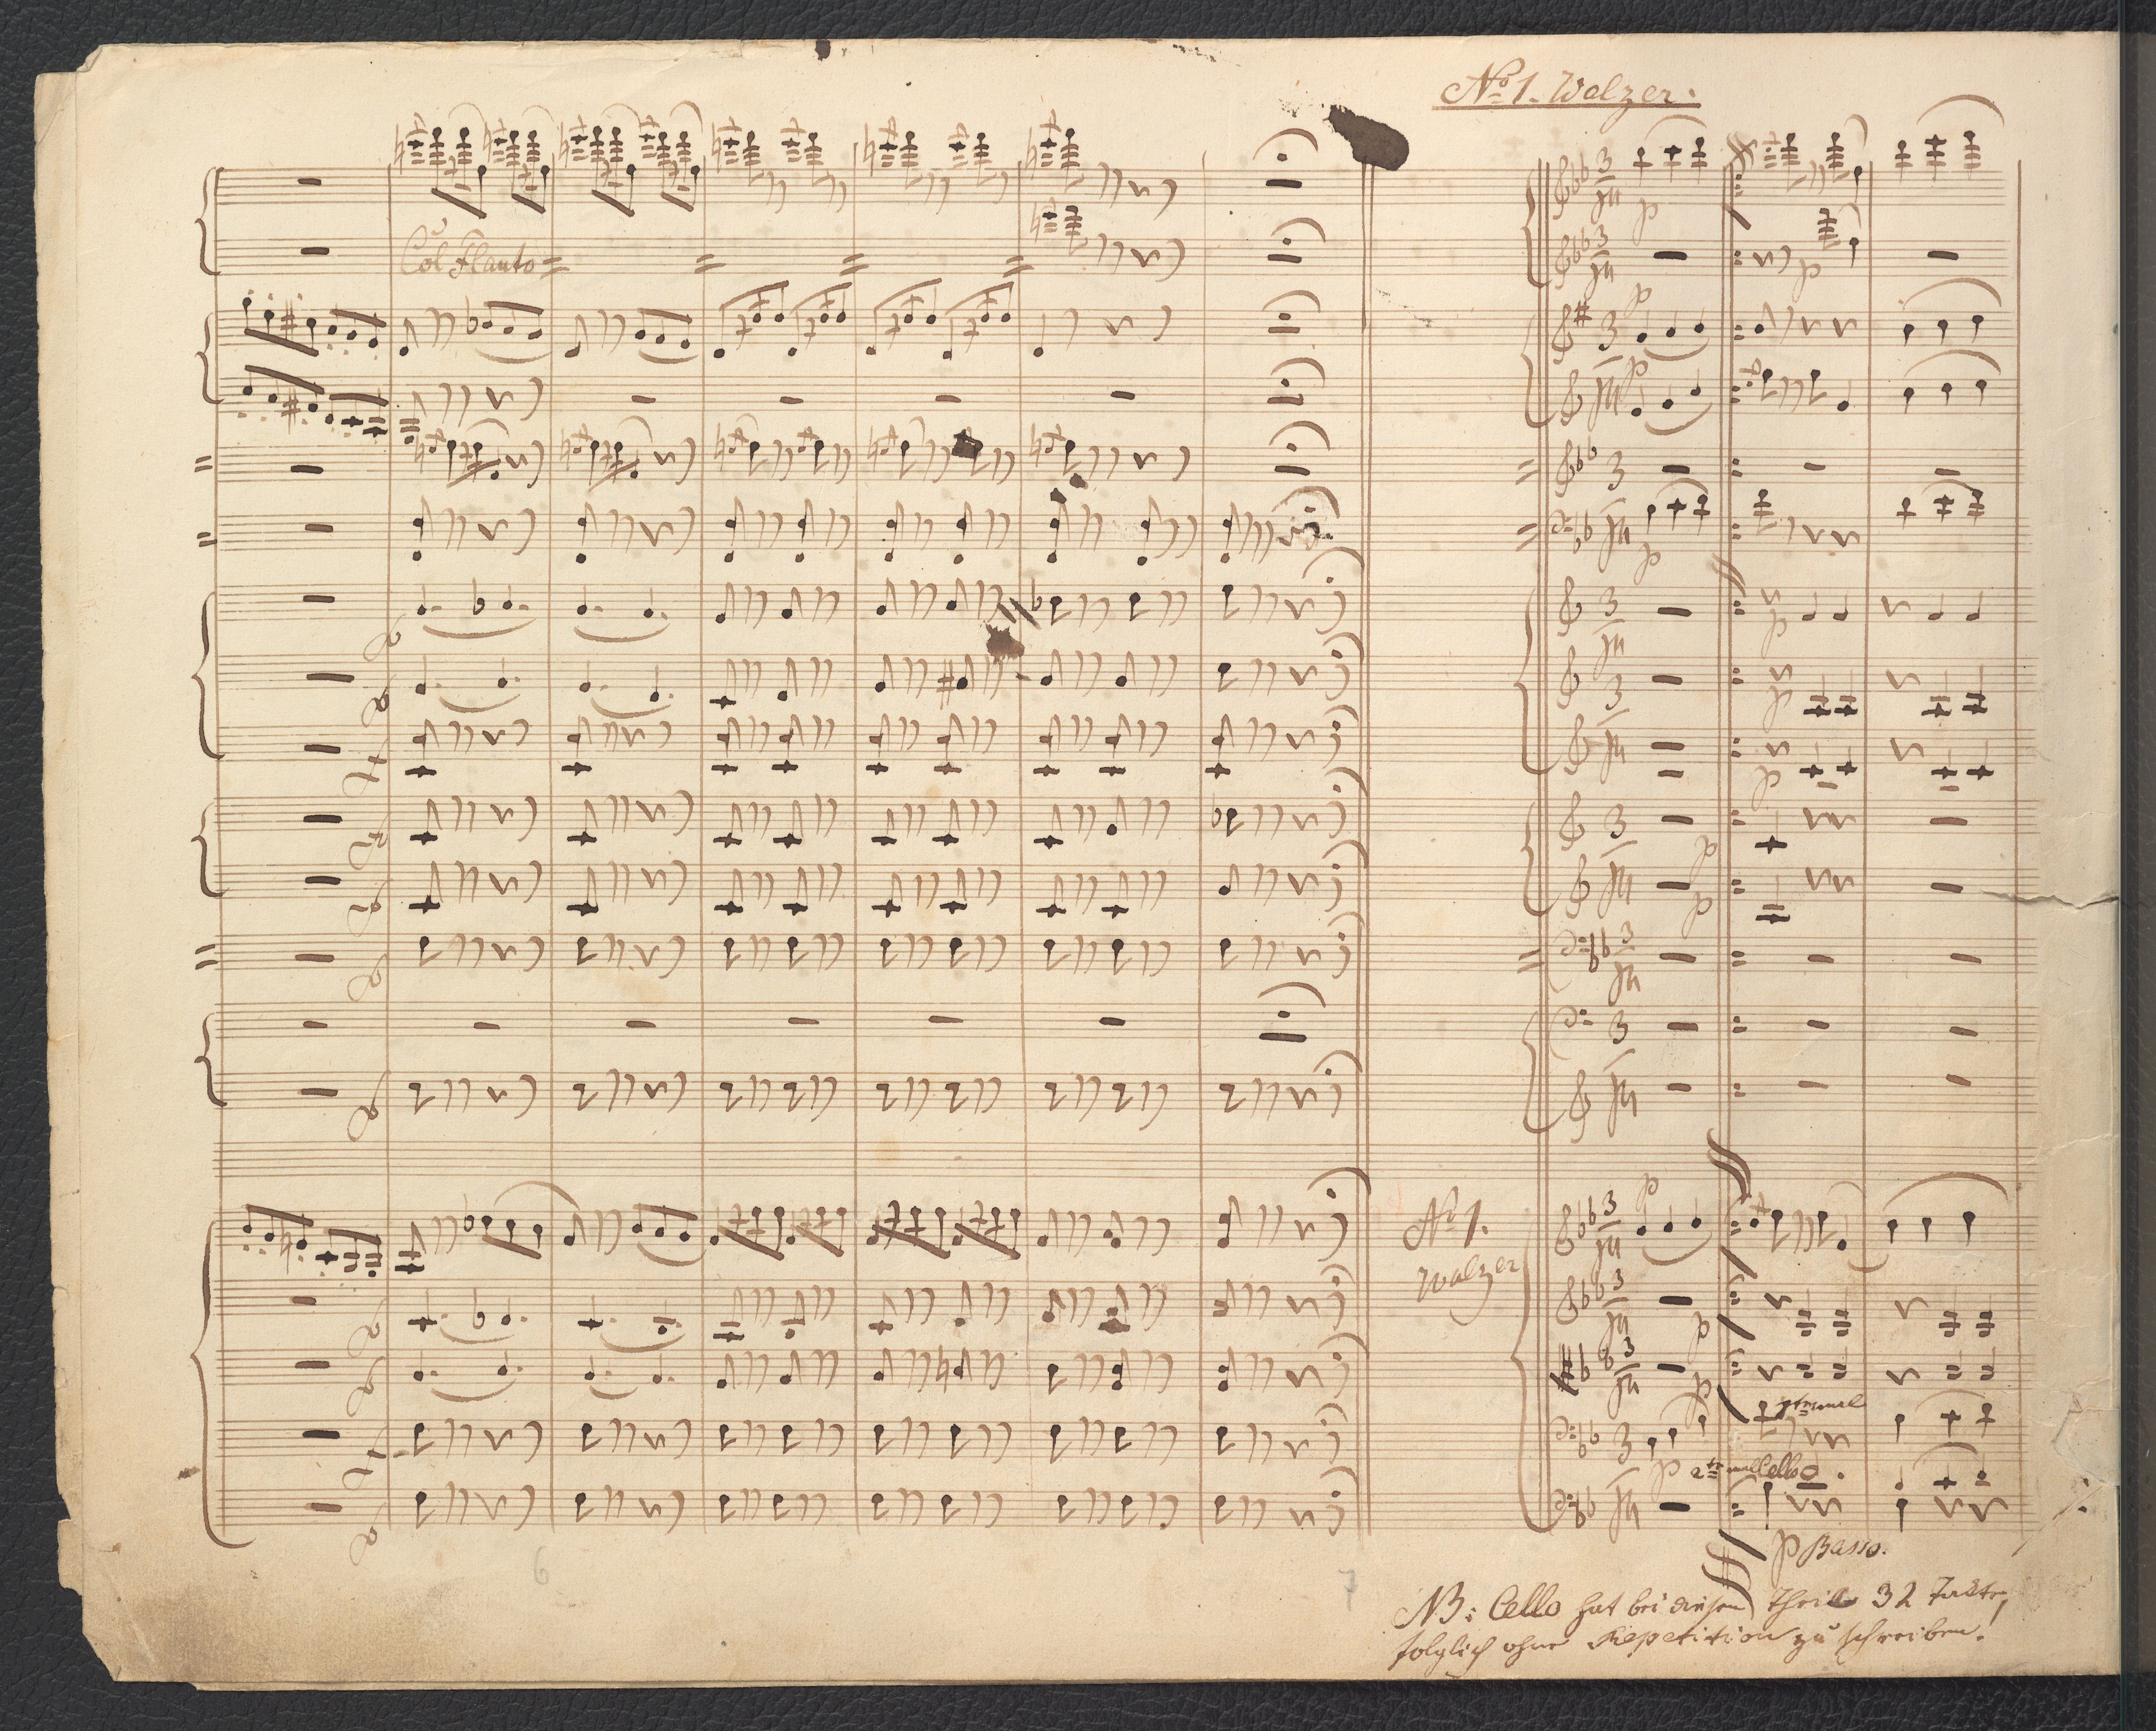 No 1. Walzer.
Col Flauto
No 1.
Walzer
1tesmal
2tesmal Cello
p Basso.
NB: Cello hat bei diesem Theile 32 Takte,
folglich ohne Repetition zu schreiben!
6
7